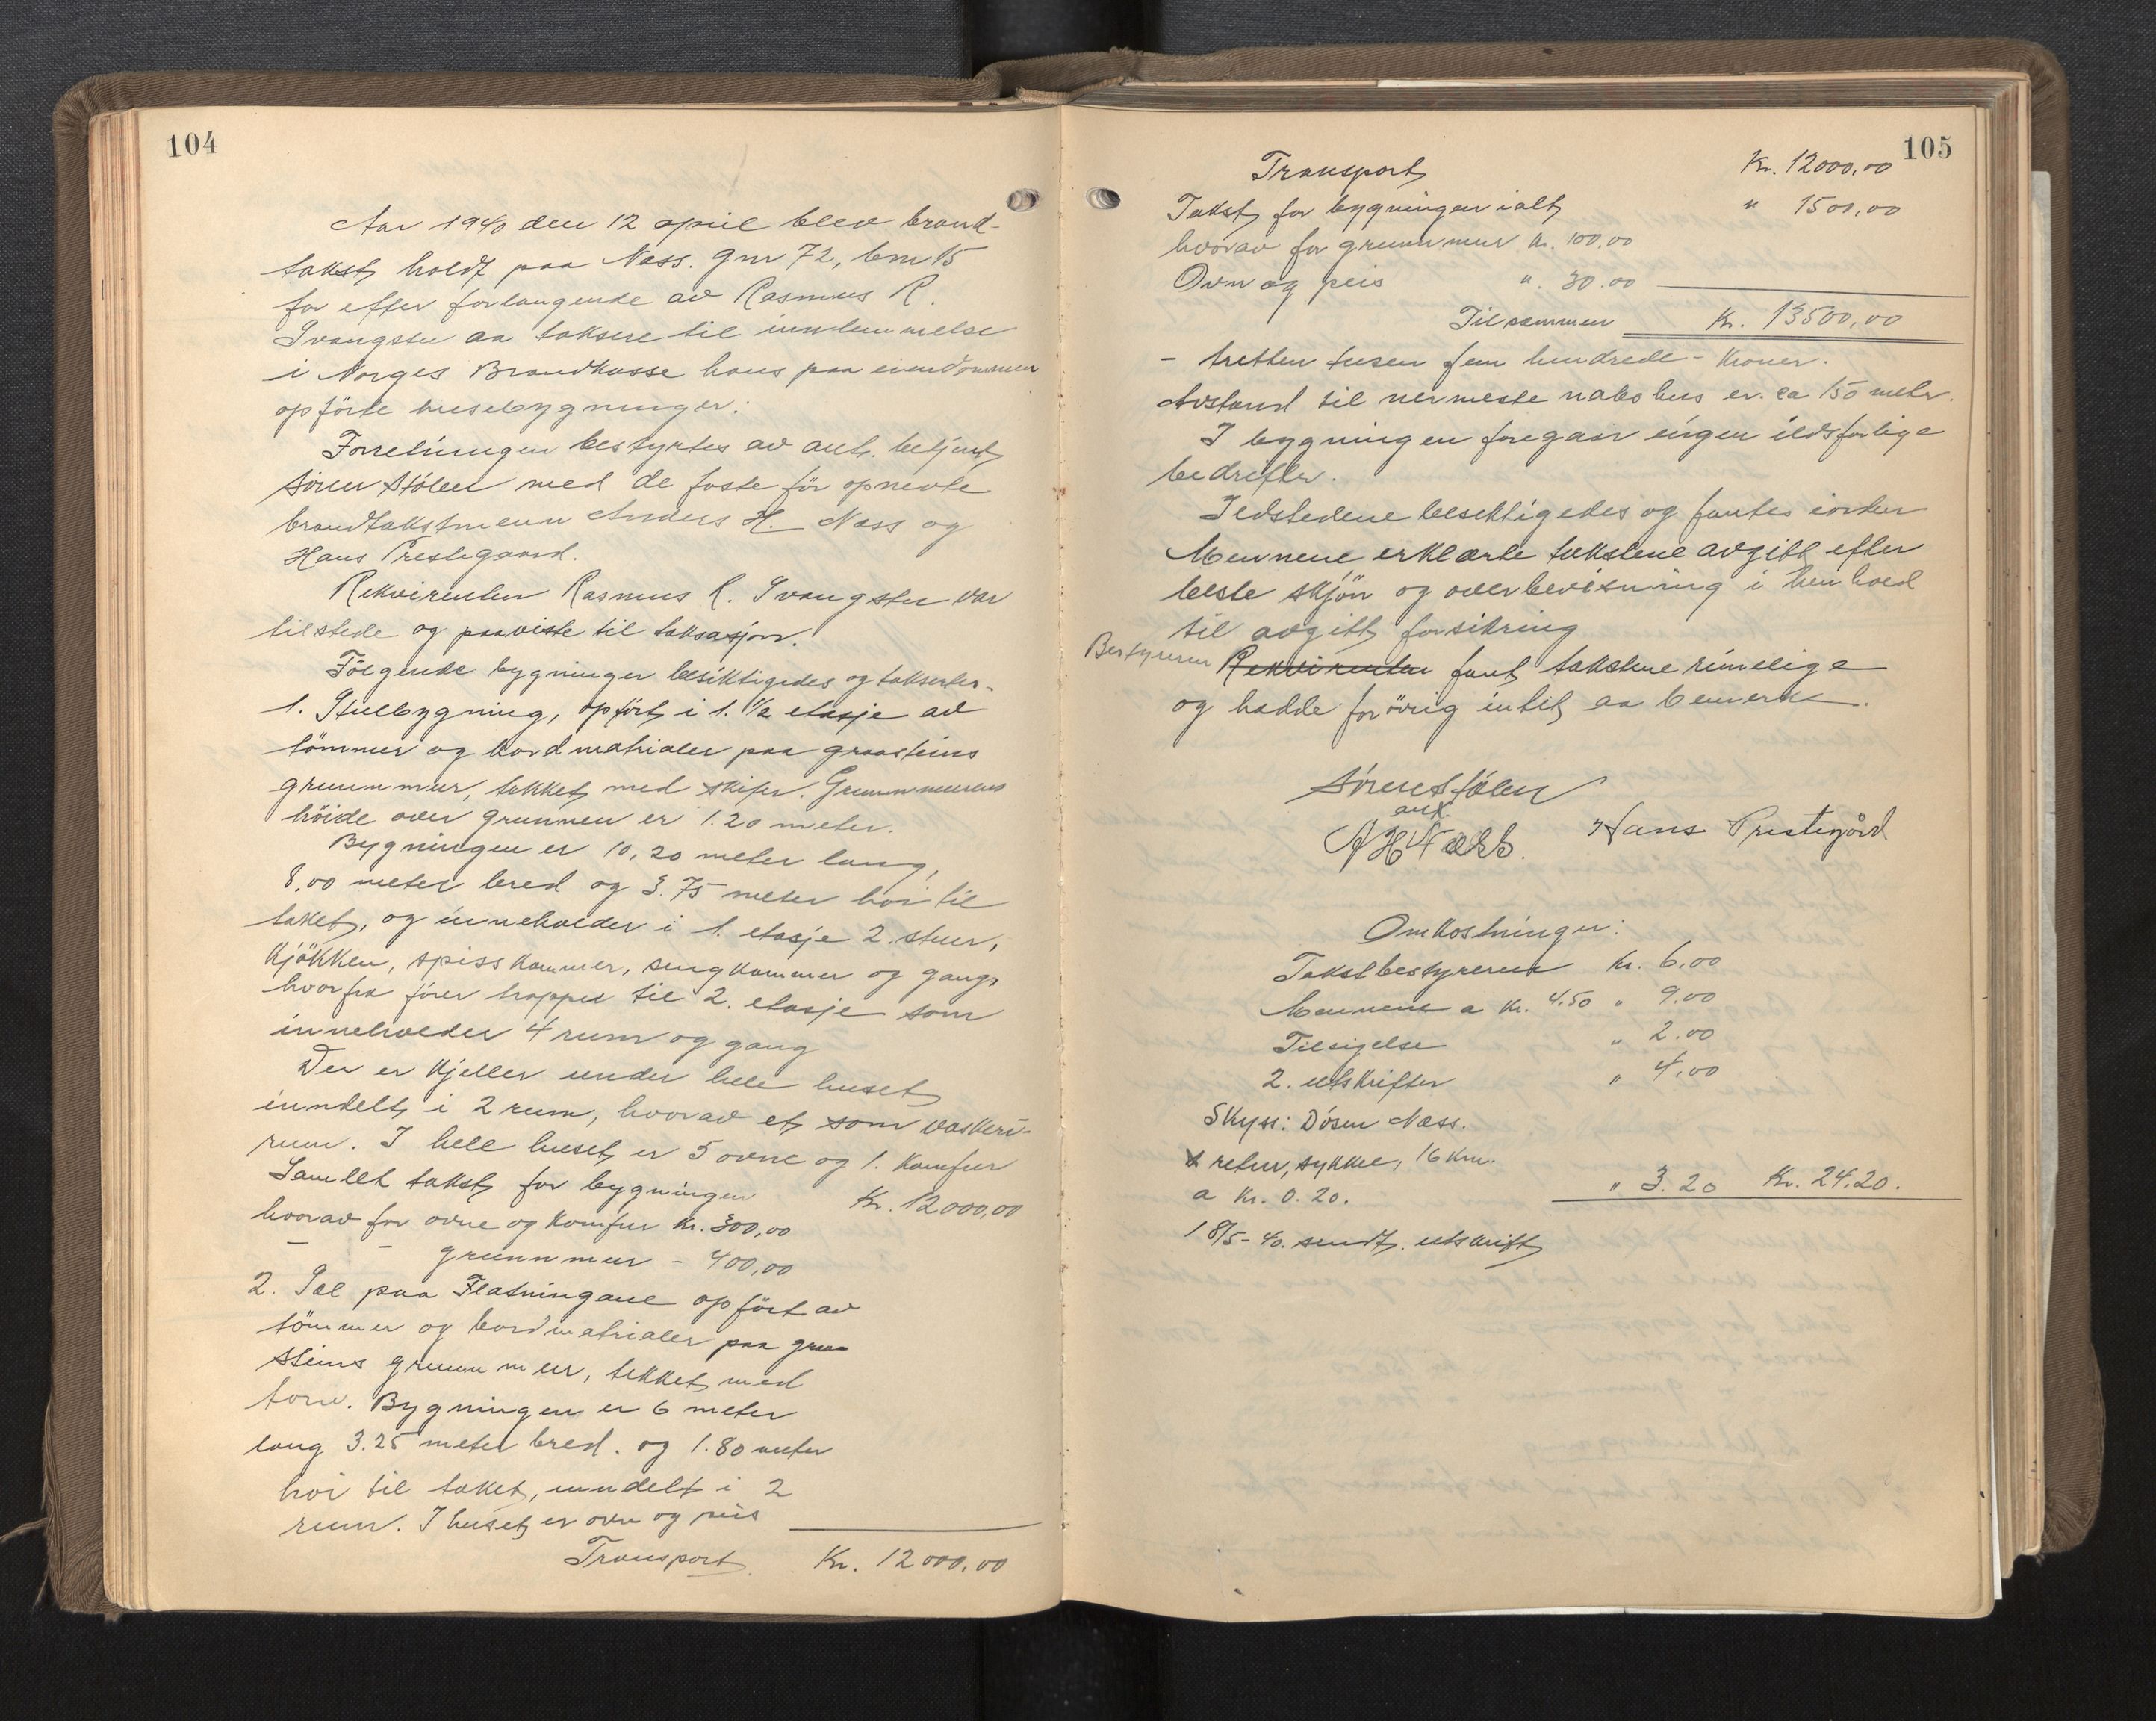 104
Aar 1940 den 12 april blev brand-
takst holdt paa Næss. gnr 72, bnr 15
for efter forlangende av Rasmus R.
Svangstu aa taksere til innlemmelse
i Norges Brandkasse hans paa eiendommen
opförte husebygninger.
Forretningen bestyrtes av aut. betjent
Sören Stölen med de faste för opnevte
brandtakstmenn Anders H. Næss og
Hans Prestegaard.
Rekvirenten Rasmus R. Svangstu var
tilstede og paaviste til taksasjon.
Fölgende bygninger besiktigedes og taksertes.
1. Stuebygning, opfört i 1. 1/2 etasje av
tömmer og bordmatrialer paa graasteins
grunnmur, tekket med skifer. Grunnmurens
höide over grunnen er 1.20 meter.
Bygningen er 10,20 meter lang,
8.00 meter bred og 3.75 meter höi til
taket, og inneholder i 1. etasje 2. stuer,
kjökken, spisskammer, sengkammer og gang,
hvorfra förer trapper til 2. etasje som
inneholder 4 rum og gang
Der er kjeller under hele huset
inndelt i 2 rum, hvorav et som vaskeri-
rum. I hele huset er 5 ovne og 1. komfur
Samlet takst for bygningen Kr. 12000,00
hvorav for ovne og komfur kr. 300,00
– – grunnmur - 400,00
2. Sel paa Flatningane opfört av
tömmer og bordmatrialer paa graa
steins grunnmur, tekket med
torv. Bygningen er 6 meter
lang 3.25 meter bred. og 1.80 meter
höi til taket, inndelt i 2
rum. I huset er ovn og peis
Transport Kr. 12000.00
105
Transport Kr. 12000,00
Takst for bygningen ialt " 1500,00
hvorav for grunnmur kr. 100,00
Ovn og peis " 30.00
Tilsammen Kr. 13500,00
- tretten tusen fem hundrede - Kroner.
Avstand til nermeste nabohus er ca 150 meter.
I bygningen foregaar ingen ildsfarlige
bedrifter.
Ildstedene besiktigedes og fantes iorden
Mennene erklærte takstene avgitt efter
beste skjön og overbevisning i henhold
til avgitt forsikring
Bestyreren Rekvirenten fant takstene rimelige
og hadde forövrig intet aa bemerke.
Sören Stölen
aut.
A H Næss. Hans Prestegård
Omkostninger:
Takstbestyreren kr. 6.00
Mennene a kr. 4.50 " 9.00
Tilsigelse " 2.00
2. utskrifter " 4,00
Skyss: Dösen Næss.
retur, sykkel, 16 km.
a kr. 0.20. " 3.20 Kr. 24.20.
18/5-40. sendt utskrift